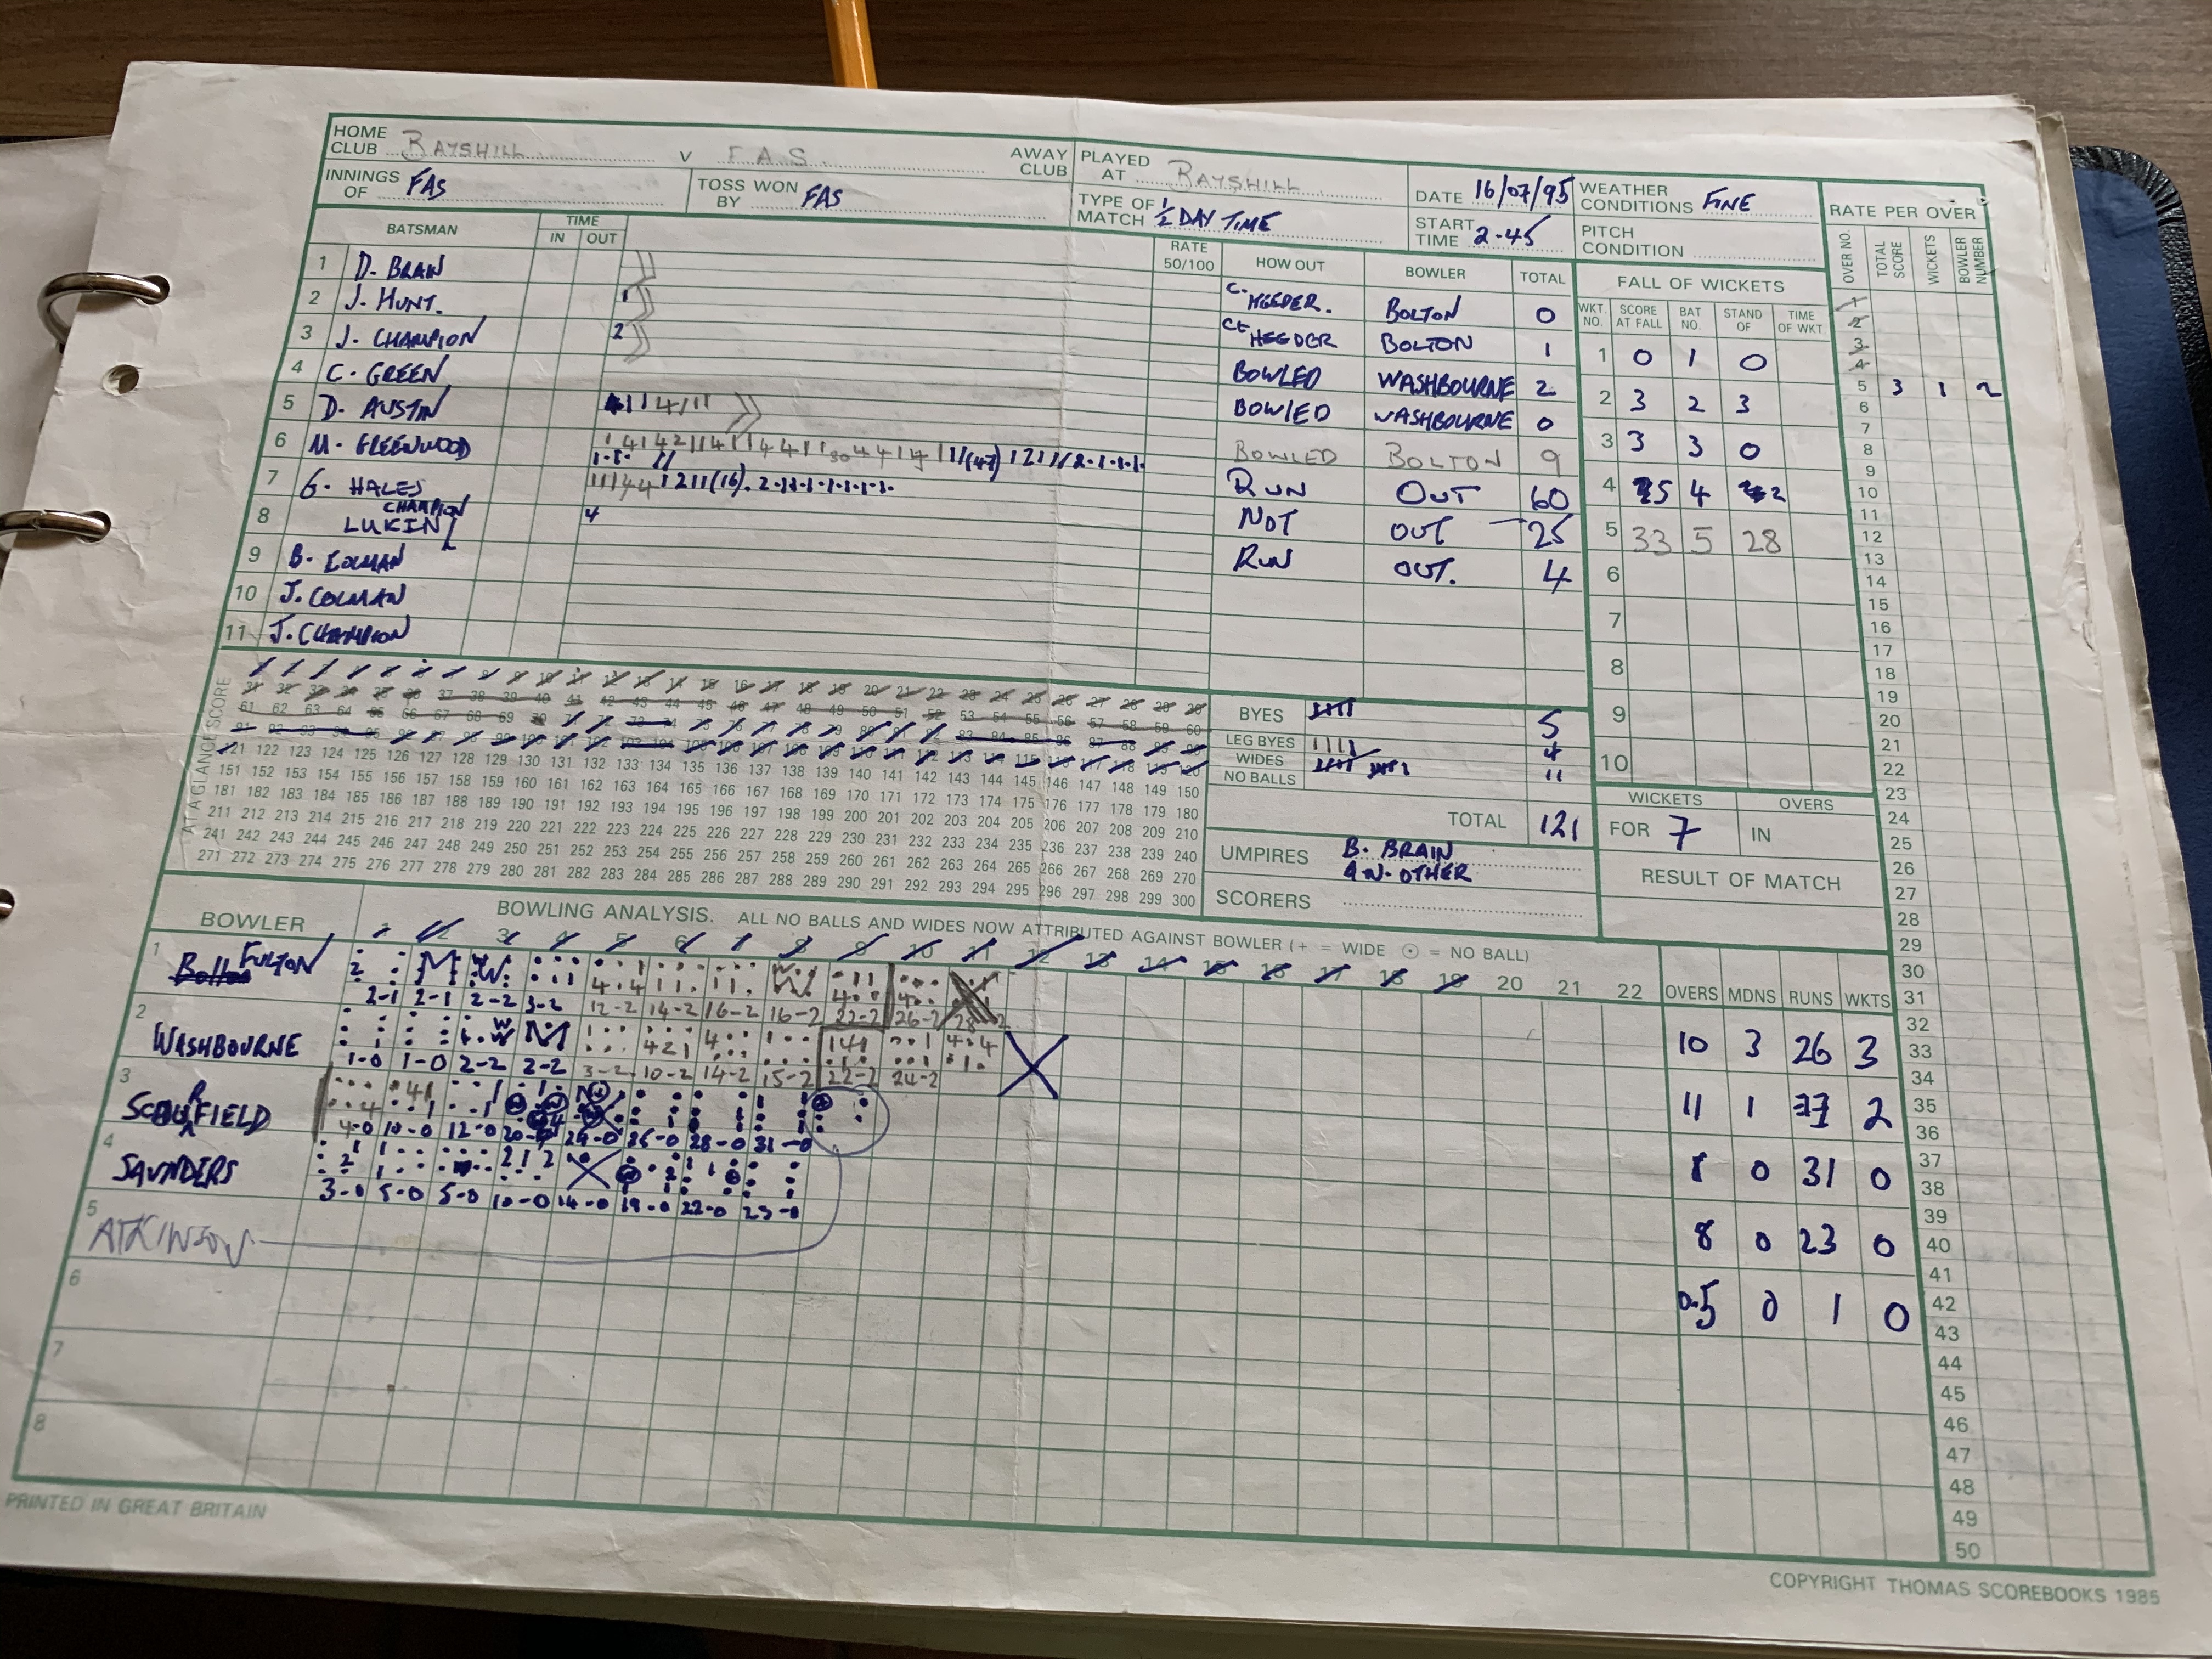 HOME CLUB BAYSHILL V F.A.S. AWAY CLUB PLAYED AT BAYSHILL DATE 16/07/95 WEATHER CONDITIONS FINE RATE PER OVER
INNINGS OF FAS TOSS WON BY FAS TYPE OF MATCH ½ DAY TIME START TIME 2-45 PITCH CONDITION
BATSMAN TIME IN OUT RATE 50/100 HOW OUT BOWLER TOTAL
1 D. BRAIN C. HEEDER. BOLTON 0
2 J. HUNT. 1 CT HEEDER BOLTON 1
3 J. CHAMPION 2 BOWLED WASHBOURNE 2
4 C. GREEN BOWLED WASHBOURNE 0
5 D. AUSTIN BOWLED BOLTON 9
6 M. GREENWOOD RUN OUT 60
7 G. HALES NOT OUT 25
8 CHAMPION LUKIN 4 RUN OUT. 4
9 B. COLMAN
10 J. COLMAN
11 J. CHAMPION
FALL OF WICKETS
WKT. NO. SCORE AT FALL BAT NO. STAND OF TIME OF WKT.
1 0 1 0
2 3 2 3
3 3 3 0
4 5 4 2
5 33 5 28
6
7
8
9
10
OVER NO. TOTAL SCORE WICKETS BOWLER NUMBER
1
2
3
4
5 3 1 2
6
7
8
9
10
11
12
13
14
15
16
17
18
19
20
21
22
23
24
25
26
27
28
29
30
31
32
33
34
35
36
37
38
39
40
41
42
43
44
45
46
47
48
49
50
AT A GLANCE SCORE
1 2 3 4 5 6 7 8 9 10 11 12 13 14 15 16 17 18 19 20 21 22 23 24 25 26 27 28 29 30
31 32 33 34 35 36 37 38 39 40 41 42 43 44 45 46 47 48 49 50 51 52 53 54 55 56 57 58 59 60
61 62 63 64 65 66 67 68 69 70 71 72 73 74 75 76 77 78 79 80 81 82 83 84 85 86 87 88 89 90
91 92 93 94 95 96 97 98 99 100 101 102 103 104 105 106 107 108 109 110 111 112 113 114 115 116 117 118 119 120
121 122 123 124 125 126 127 128 129 130 131 132 133 134 135 136 137 138 139 140 141 142 143 144 145 146 147 148 149 150
151 152 153 154 155 156 157 158 159 160 161 162 163 164 165 166 167 168 169 170 171 172 173 174 175 176 177 178 179 180
181 182 183 184 185 186 187 188 189 190 191 192 193 194 195 196 197 198 199 200 201 202 203 204 205 206 207 208 209 210
211 212 213 214 215 216 217 218 219 220 221 222 223 224 225 226 227 228 229 230 231 232 233 234 235 236 237 238 239 240
241 242 243 244 245 246 247 248 249 250 251 252 253 254 255 256 257 258 259 260 261 262 263 264 265 266 267 268 269 270
271 272 273 274 275 276 277 278 279 280 281 282 283 284 285 286 287 288 289 290 291 292 293 294 295 296 297 298 299 300
BYES 5
LEG BYES 4
WIDES 11
NO BALLS
TOTAL 121
UMPIRES B. BRAIN
A.N. OTHER
SCORERS
WICKETS OVERS
FOR 7 IN
RESULT OF MATCH
BOWLER BOWLING ANALYSIS. ALL NO BALLS AND WIDES NOW ATTRIBUTED AGAINST BOWLER (+ = WIDE ⊙ = NO BALL)
1 2 3 4 5 6 7 8 9 10 11 12 13 14 15 16 17 18 19 20 21 22 OVERS MDNS RUNS WKTS
1 Bolton FULTON 10 3 26 3
2-1 2-1 2-2 3-2 12-2 14-2 16-2 16-2 22-2 26-2 28-2
2 WASHBOURNE 11 1 2
1-0 1-0 2-2 2-2 3-2 10-2 14-2 15-2 22-2 24-2
3 SCOURFIELD 8 0 31 0
4-0 10-0 12-0 28-0 31-0
4 SAUNDERS 8 0 23 0
3-0 5-0 5-0 10-0 14-0 19-0 22-0 23-0
5 ATKINSON 0.5 0 1 0
6
7
8
PRINTED IN GREAT BRITAIN
COPYRIGHT THOMAS SCOREBOOKS 1985